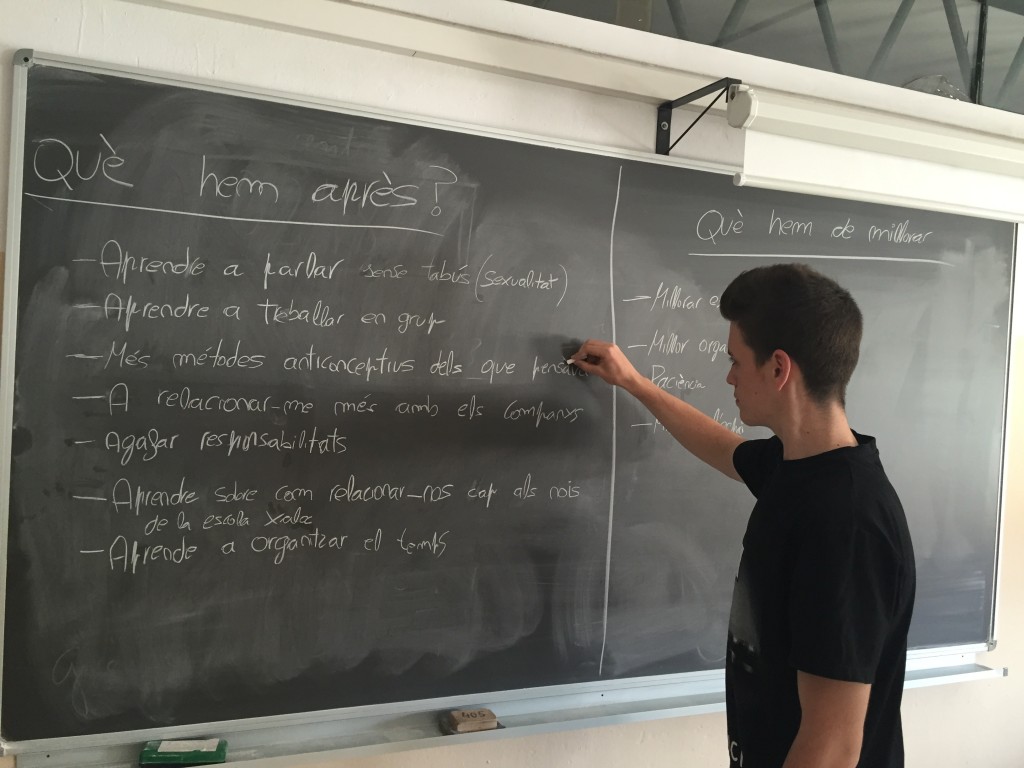 Què hem après?
- Aprendre a parlar sense tabús (sexualitat)
- Aprendre a treballar en grup
- Més métodes anticonceptius dels que
- A relacionar-me més amb els companys
- Agafar responsabilitats
- Aprendre sobre com relacionar-nos cap als nois
de la escola xalz
- Aprende a organitzar el temps
Què hem de millorar
- Millorar
- Millor
- Paciència
-
405